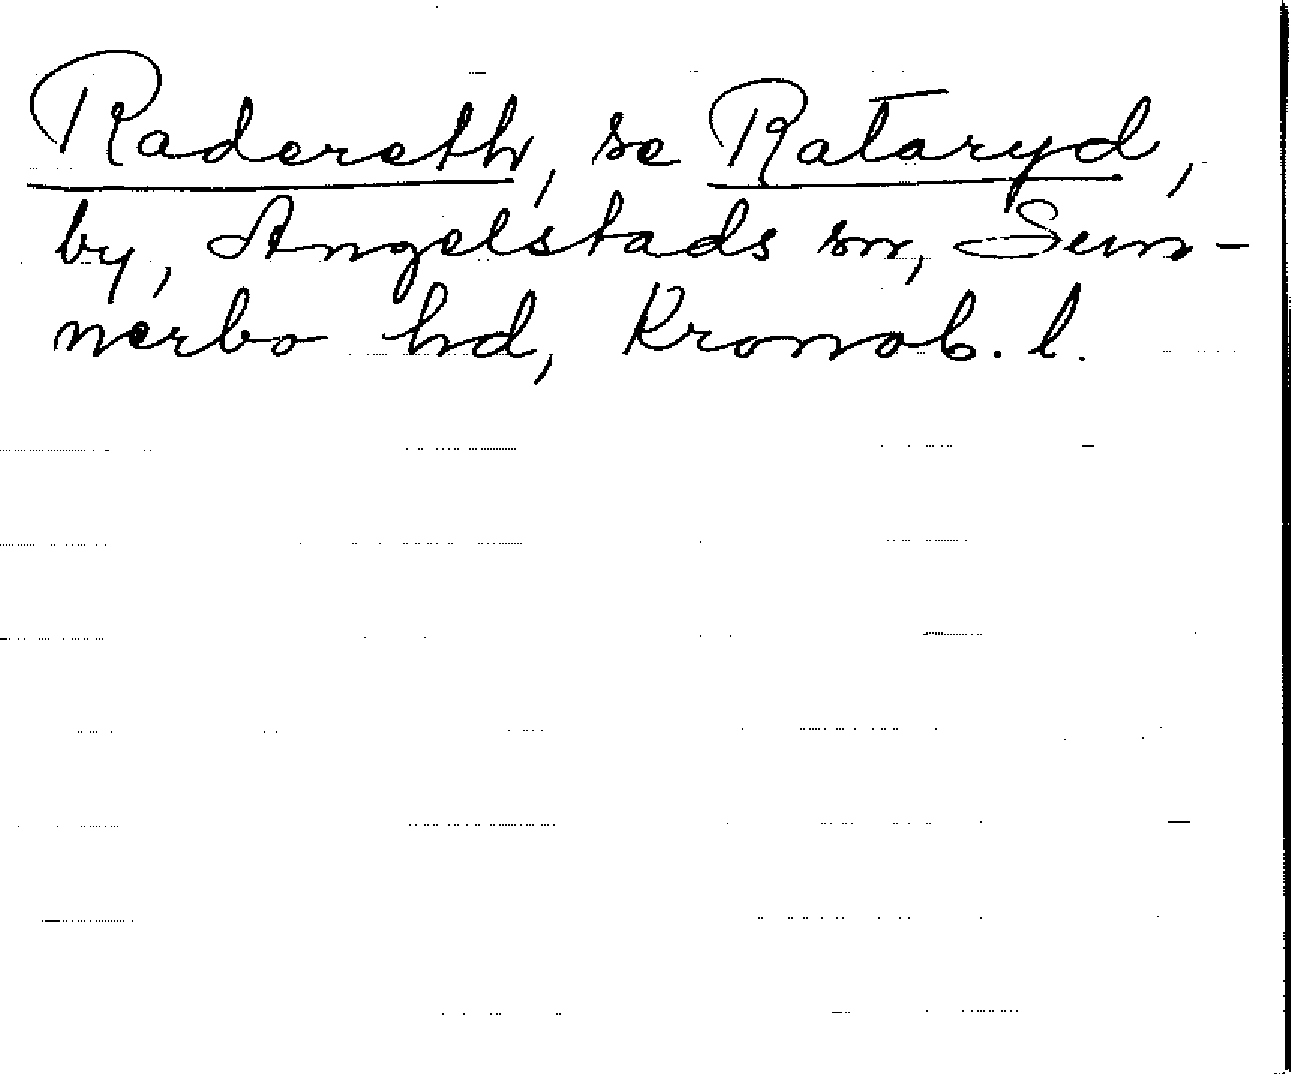 Radereth, se Rataryd,
by, Angelstads sn, Sun-
nerbo hd, Kronob. l.